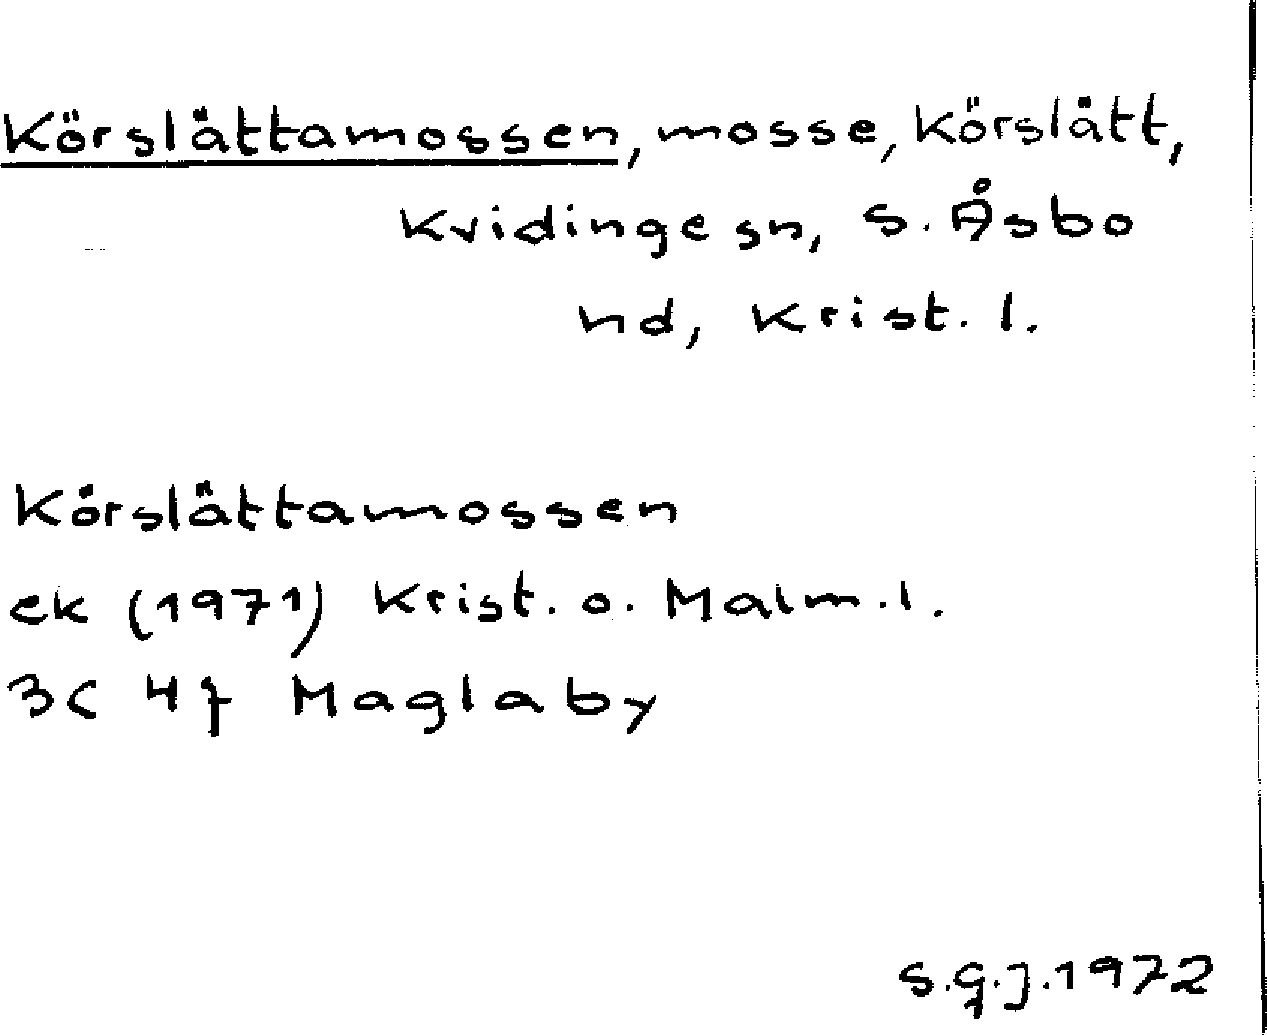 Körslättamossen, mosse, Körslätt,
Kvidinge sn, S. Åsbo
hd, Krist. l.
Körslättamossen
ek (1971) Krist. o. Malm. l.
3C 4f Maglaby
S.G.J. 1972